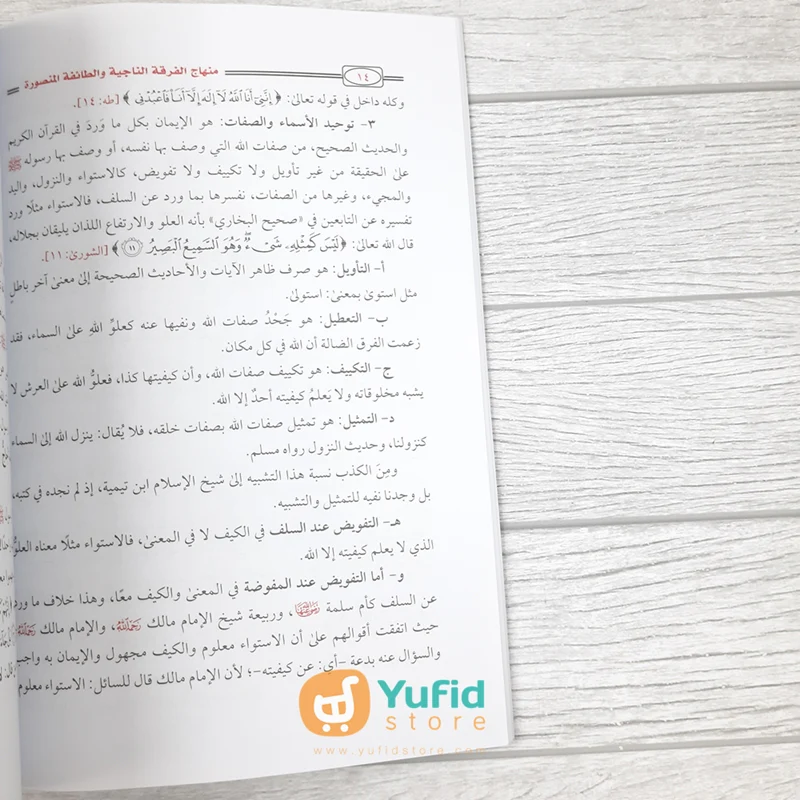 ١٤
منهاج الفرقة الناجية والطائفة المنصورة
وكله داخل في قوله تعالىٰ: ﴿ إِنَّنِيٓ أَنَا ٱللَّهُ لَآ إِلَٰهَ إِلَّآ أَنَا۠ فَٱعۡبُدۡنِي ﴾ [طه: ١٤].
٣- توحيد الأسماء والصفات: هو الإيمان بكل ما وَردَ في القرآن الكريم
والحديث الصحيح، من صفات الله التي وصف بها نفسه، أو وصف بها رسوله ﷺ
علىٰ الحقيقة من غير تأويل ولا تكييف ولا تفويض، كالاستواء والنزول، واليد
والمجيء، وغيرها من الصفات، نفسرها بما ورد عن السلف، فالاستواء مثلًا ورد
تفسيره عن التابعين في «صحيح البخاري» بأنه العلو والارتفاع اللذان يليقان بجلاله،
قال الله تعالىٰ: ﴿لَيۡسَ كَمِثۡلِهِۦ شَيۡءٞۖ وَهُوَ ٱلسَّمِيعُ ٱلۡبَصِيرُ ١١﴾ [الشورىٰ: ١١].
أ- التأويل: هو صرف ظاهر الآيات والأحاديث الصحيحة إلىٰ معنىٰ آخر باطل
مثل استوىٰ بمعنىٰ: استولىٰ.
ب- التعطيل: هو جَحْدُ صفات الله ونفيها عنه كعلوِّ اللهِ علىٰ السماء، فقد
زعمت الفرق الضالة أن الله في كل مكان.
ج- التكييف: هو تكييف صفات الله، وأن كيفيتها كذا، فعلوُّ الله علىٰ العرش لا
يشبه مخلوقاته ولا يَعلمُ كيفيته أحدٌ إلا الله.
د- التمثيل: هو تمثيل صفات الله بصفات خلقه، فلا يُقال: ينزل الله إلىٰ السماء
كنزولنا، وحديث النزول رواه مسلم.
ومِنَ الكذب نسبة هذا التشبيه إلىٰ شيخ الإسلام ابن تيمية، إذ لم نجده في كتبه،
بل وجدنا نفيه للتمثيل والتشبيه.
هـ- التفويض عند السلف في الكيف لا في المعنىٰ، فالاستواء مثلًا معناه العلو
الذي لا يعلم كيفيته إلا الله.
و- أما التفويض عند المفوضة في المعنىٰ والكيف معًا، وهذا خلاف ما ورد
عن السلف كأم سلمة رضي الله عنها، وربيعة شيخ الإمام مالك رحمه الله، والإمام مالك رحمه الله
حيث اتفقت أقوالهم علىٰ أن الاستواء معلوم والكيف مجهول والإيمان به واجب
والسؤال عنه بدعة -أي: عن كيفيته-؛ لأن الإمام مالك قال للسائل: الاستواء معلوم
Yufid
store
www.yufidstore.com